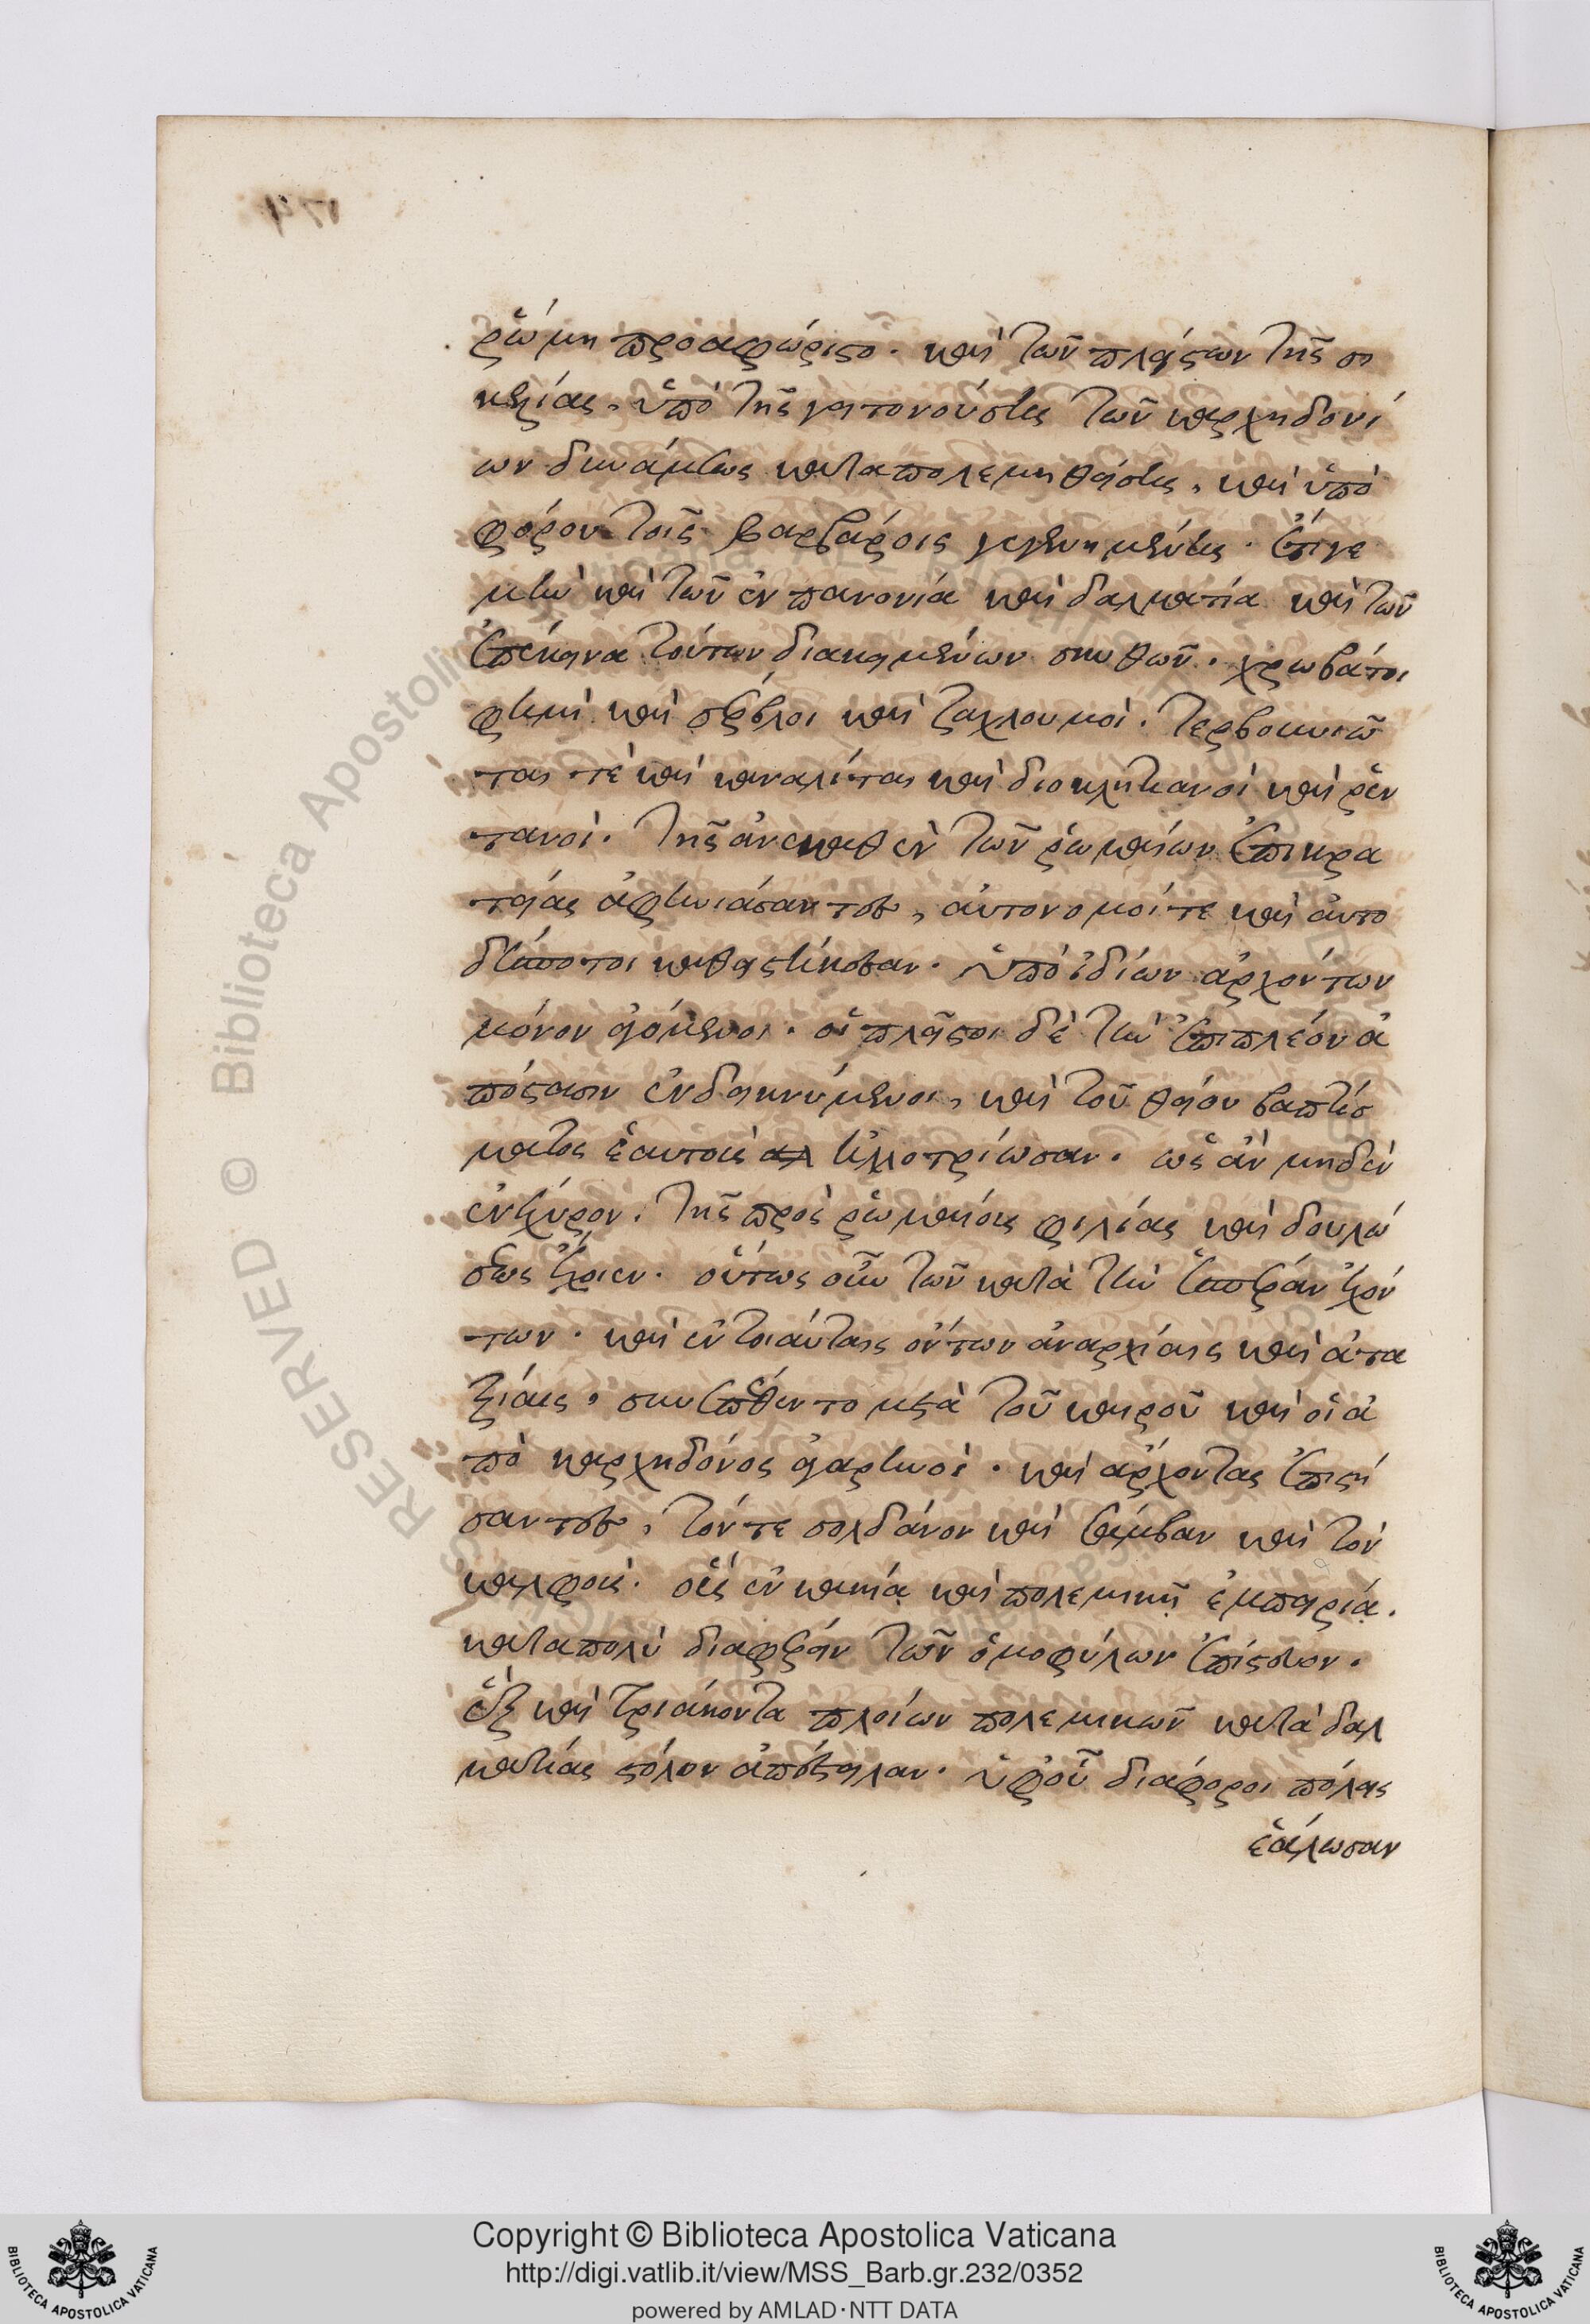 ῥώμη προαφώριστο. καὶ τῶν πλείστων τῆς σι
κελίας, ὑπὸ τῆς γειτονούσης τῶν καρχηδονί
ων δυνάμεως καταπολεμηθείσης, καὶ ὑπό
φόρου τοῖς βαρβάροις γεγενημένης. ἔτι γε
μὴν καὶ τῶν ἐν πανονία καὶ δαλματία καὶ τῶν
ἐπέκεινα τούτων διακειμένων σκυθῶν. χρωβάτοι
φημὶ καὶ σέρβλοι καὶ ζαχλουμοὶ. τερβουνιῶ
ται τὲ καὶ καναλίται καὶ διοκλητιανοὶ καὶ ῥεν
τανοὶ. τῆς ἀνέκαθεν τῶν ῥωμαίων ἐπικρα
τείας ἀφηνιάσαντες, αὐτονομοί τε καὶ αὐτο
δέσποτοι καθειστήκεσαν. ὑπὸ ἰδίων ἀρχόντων
μόνον ἀγόμενοι. οἱ πλεῖστοι δὲ τὴν ἐπιπλέον ἀ
πόστασιν ἐνδεικνύμενοι, καὶ τοῦ θείου βαπτίσ
ματος ἑαυτοὺς ἠλλοτρίωσαν. ὡς ἂν μηδὲν
ἐνέχυρον. τῆς πρὸς ῥωμαίους φιλίας καὶ δουλώ
σεως ἔχοιεν. οὕτως οὖν τῶν κατὰ τὴν ἑσπέραν ἐχόν
των. καὶ ἐν τοιαύταις ὄντων ἀναρχίαις καὶ ἀτα
ξίαις. συνεπέθεντο μετὰ τοῦ καιροῦ καὶ οἱ ἀ
πὸ καρχηδόνος ἀγαρηνοὶ. καὶ ἄρχοντας ἐπιστή
σαντες, τόν τε σολδάνον καὶ σάμβαν καὶ τὸν
καλφοὺς. οἳ ἐν κακία καὶ πολεμικῇ ἐμπειρία.
καταπολὺ διαφέρειν τῶν ὁμοφύλων ἐπίστευον.
ἓξ καὶ τριάκοντα πλοίων πολεμικῶν κατὰ δαλ
ματίας στόλον ἀπέστειλαν. ὑφ' οὗ διάφοροι πόλεις
ἑάλωσαν
RESERVED © Biblioteca Apostolica
Copyright © Biblioteca Apostolica Vaticana
http://digi.vatlib.it/view/MSS_Barb.gr.232/0352
powered by AMLAD·NTT DATA
BIBLIOTECA APOSTOLICA VATICANA
BIBLIOTECA APOSTOLICA VATICANA